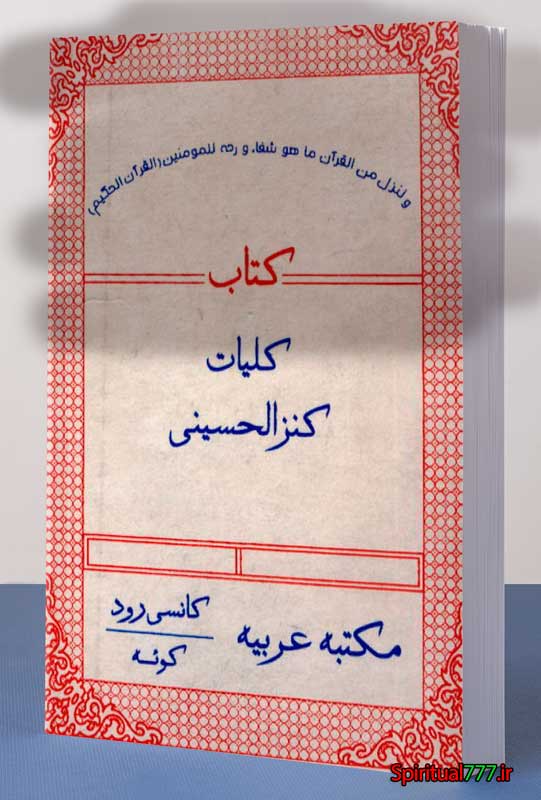 و لنزل من القرآن ما هو شفاء و رحه للمومنین (القرآن الحکیم)
کتاب
کلیات
کنزالحسینی
مکتبه عربیه
کانسی رود
کوئٹه
Spiritual777.ir